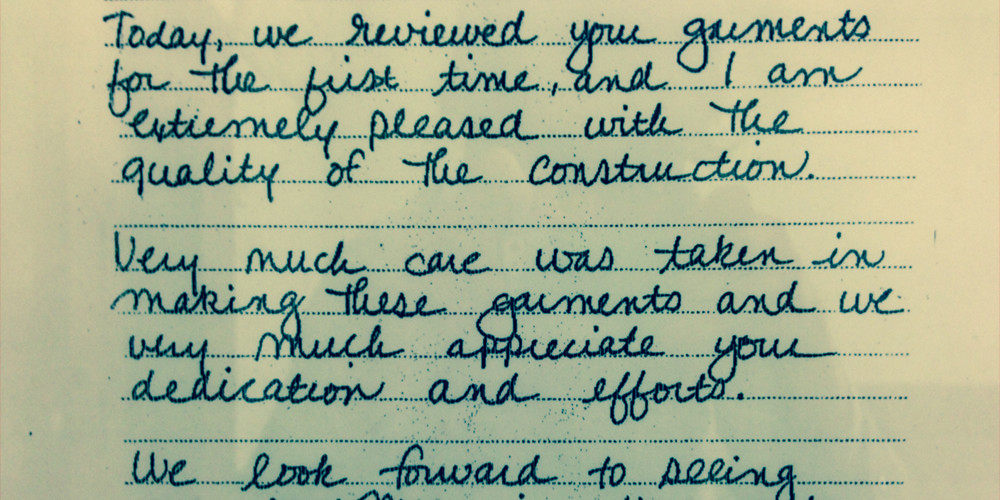 Today, we reviewed your garments
for the first time, and I am
extremely pleased with the
quality of the construction.
Very much care was taken in
making these garments and we
very much appreciate your
dedication and efforts.
We look forward to seeing